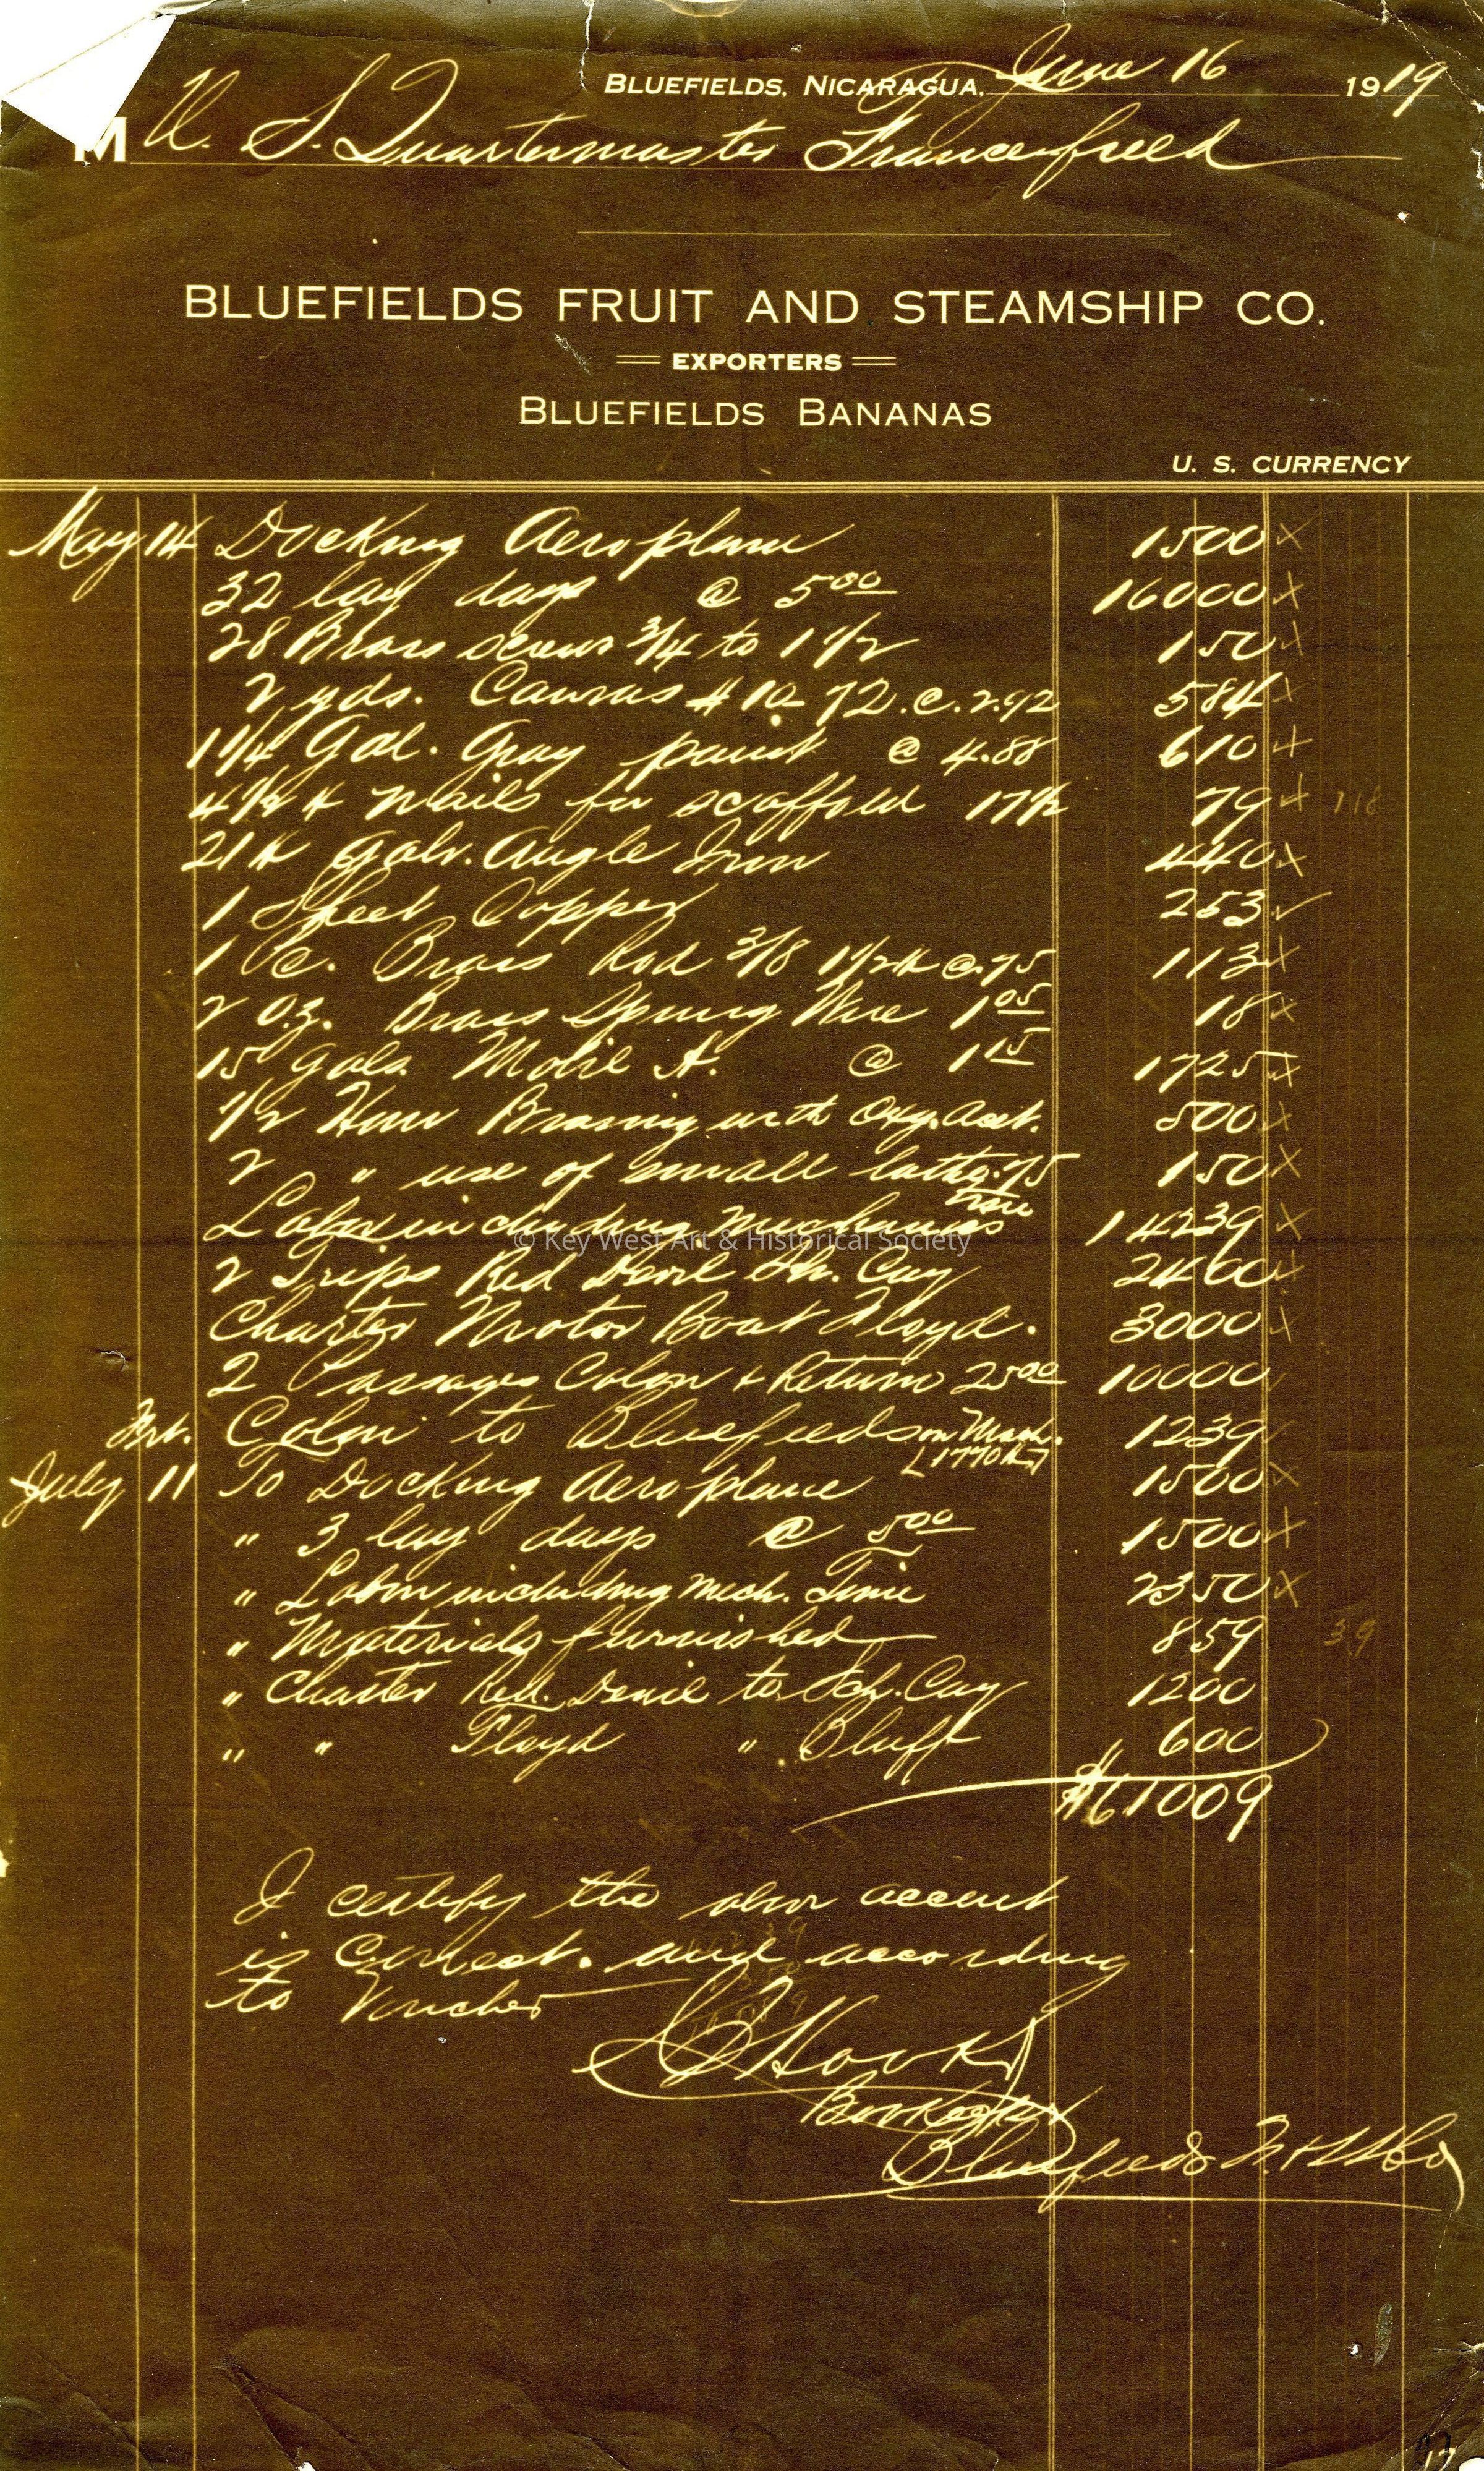 BLUEFIELDS, NICARAGUA, June 16 1919
M U. S. Quartermaster Francefield
BLUEFIELDS FRUIT AND STEAMSHIP CO.
EXPORTERS
BLUEFIELDS BANANAS
U. S. CURRENCY
May 14 Docking Aeroplane 1500 x
32 lay days @ 5 00 16000 x
28 Brass screws 3/4 to 1 1/2 150 x
2 yds. Canvas # 10 72. @. 2.92 584 x
1 1/4 Gal. Gray paint @ 4.88 610 x
4 1/2 # nails for scaffold 17 1/2 79 x 118
21 # Galv. Angle Iron 440 x
1 Sheet Copper 253 ✓
1 Pc. Brass Rod 3/8 1 1/2 # @ .75 113 x
2 Oz. Brass Spring Wire 1 05 18 x
15 Gals. Mobile A. @ 1 15 1725 x
1/2 Hour Brazing with Oxy. Acet. 500 x
2 " use of small lathe .75 150 x
Labor including Mechanics time 14239 x
© Key West Art & Historical Society
2 Trips Red Devil Sh. Cay 2400 x
Charter Motor Boat Floyd. 3000 x
2 Passages Colon & Return 25 00 10000
Frt. Colon to Bluefields on Mach. 1239
[1770 #]
July 11 To Docking Aeroplane 1500 x
" 3 lay days @ 5 00 1500 x
" Labor including Mech. Time 2350 x
" Materials furnished 859 39
" Charter Red. Devil to Sch. Cay 1200
" " Floyd " Bluff 600
$61009
I certify the abov account
is Correct. and according
to Voucher
Bookeeper
Bluefields F. & S.S. Co